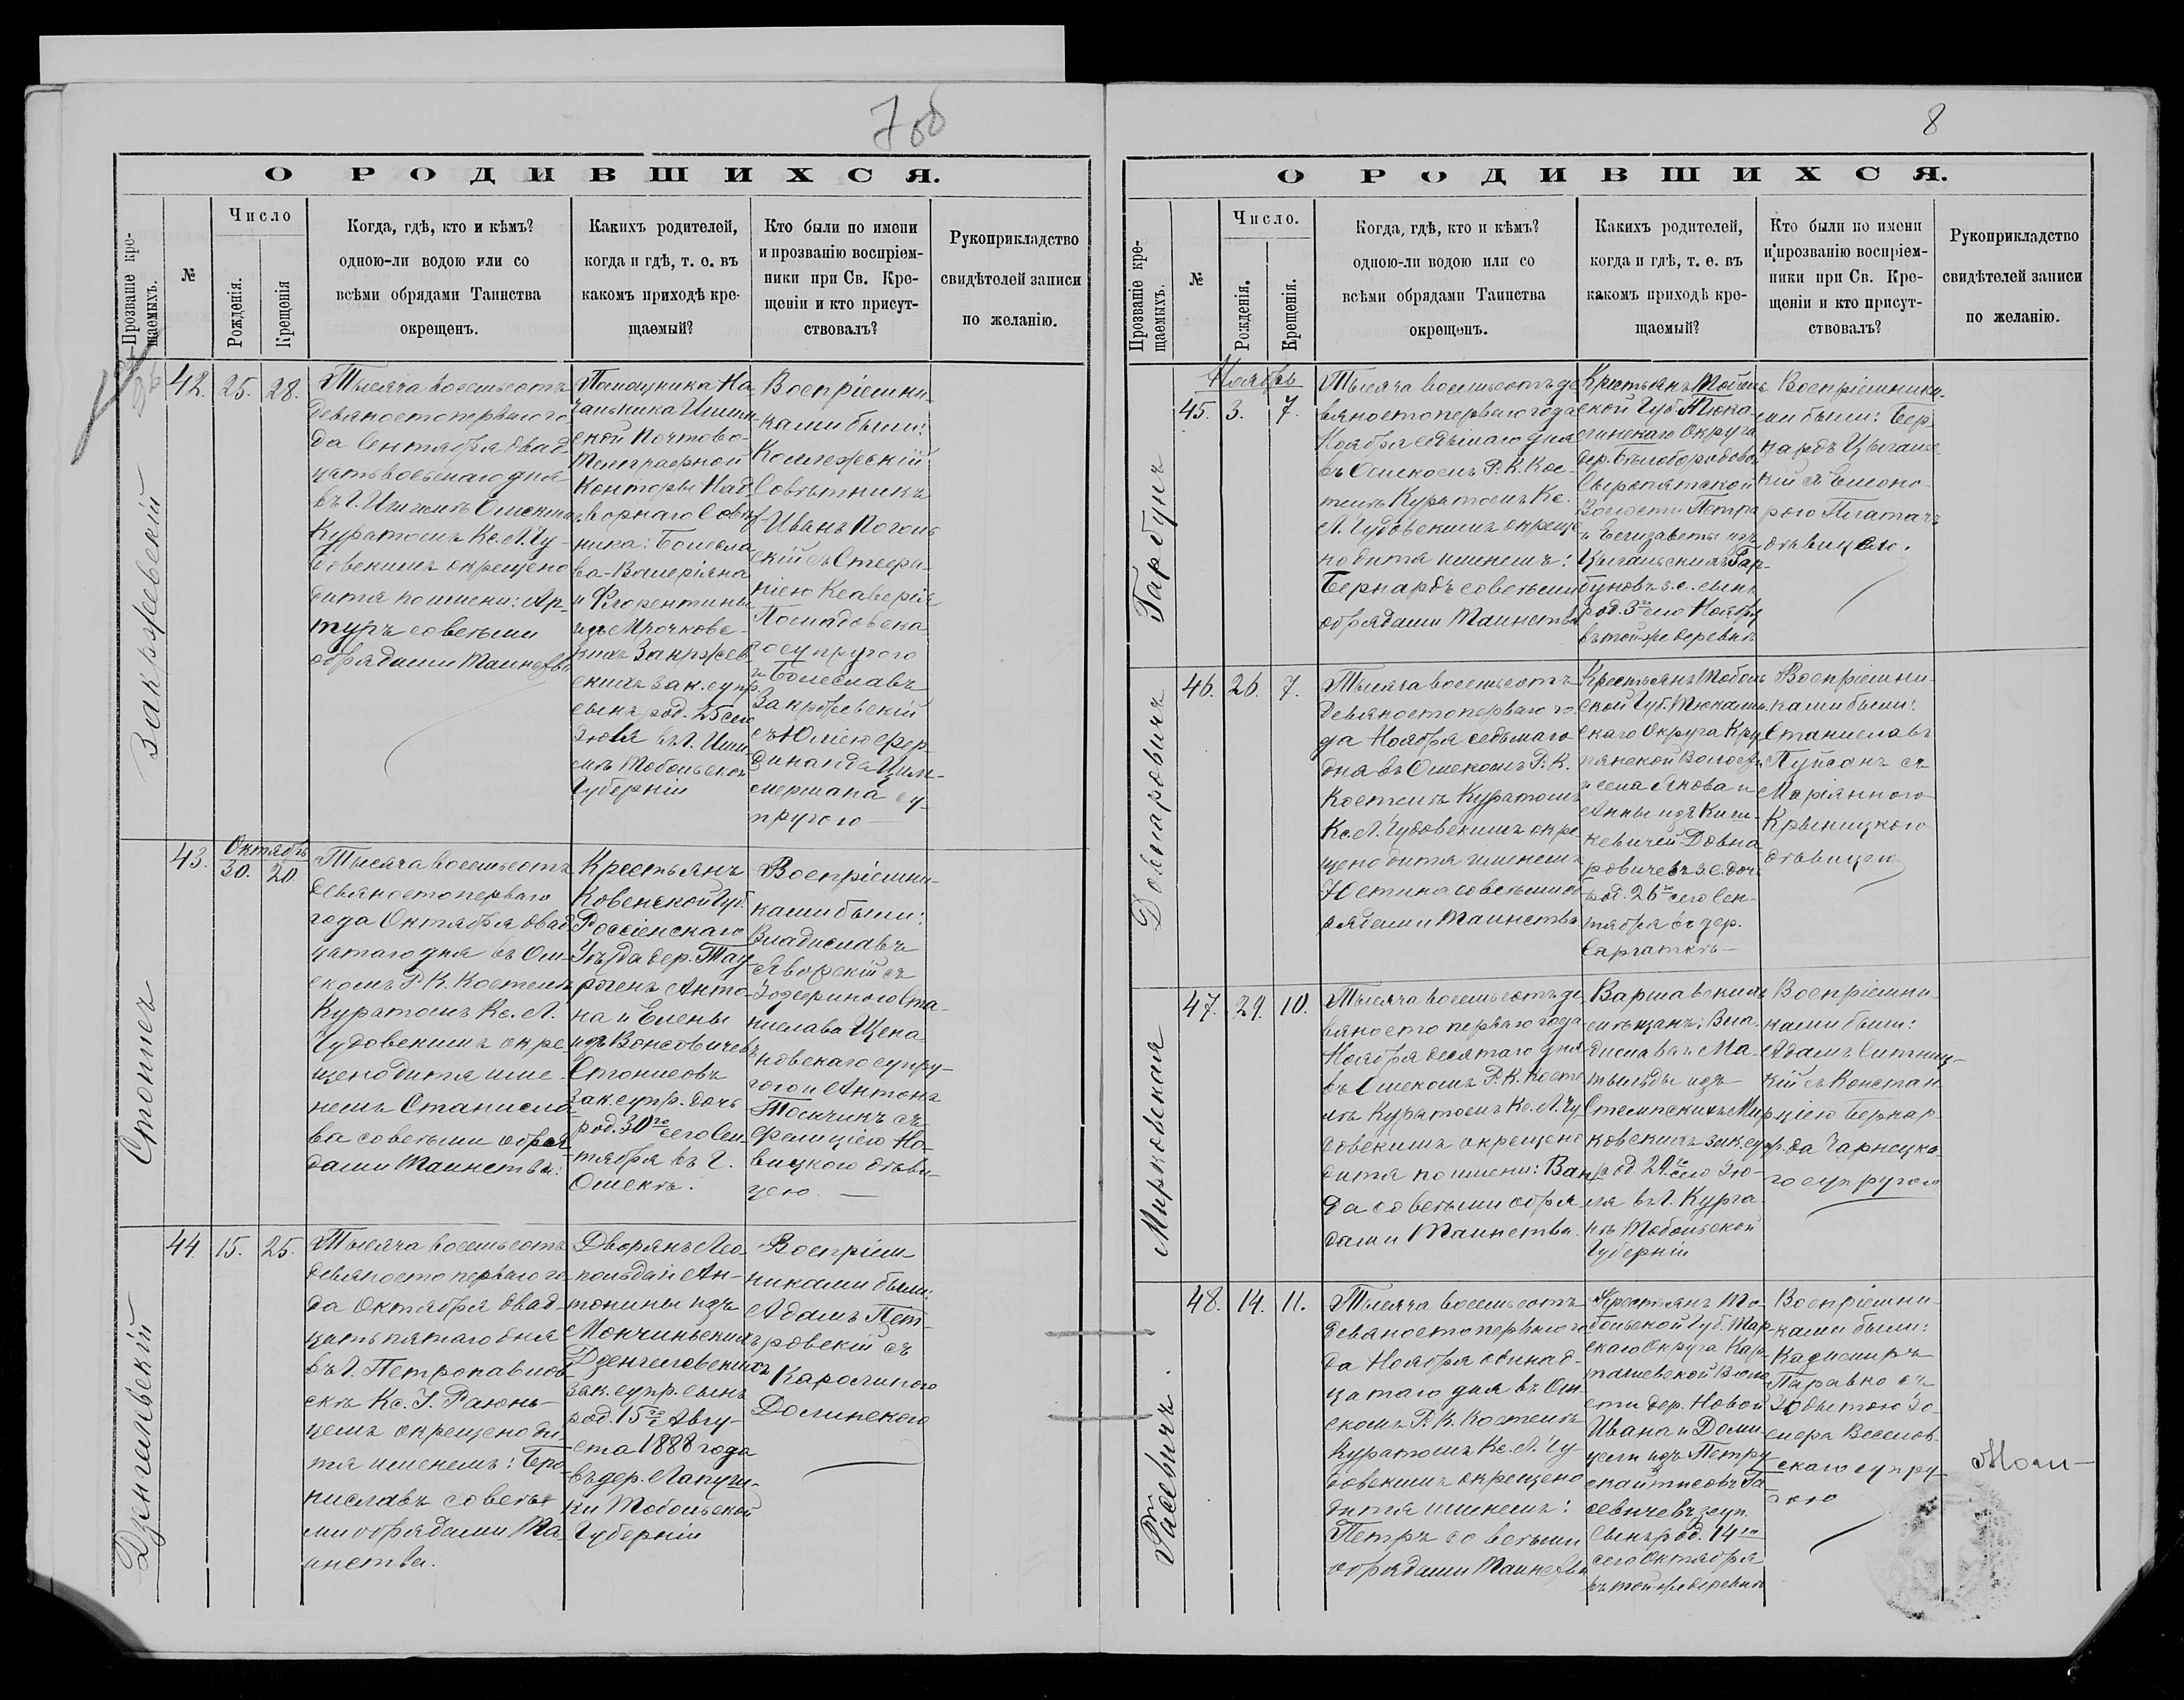 7 об
О РОДИВШИХСЯ.
Прозваніе кре-
щаемыхъ.
№
Число
Рожденія.
Крещенія
Когда, гдѣ, кто и кѣмъ?
одною-ли водою или со
всѣми обрядами Таинства
окрещенъ.
Какихъ родителей,
когда и гдѣ, т. е. въ
какомъ приходѣ кре-
щаемый?
Кто были по имени
и прозванію воспріем-
ники при Св. Кре-
щеніи и кто присут-
ствовалъ?
Рукоприкладство
свидѣтелей записи
по желанію.
Закржевскій
42. 25. 28.
Тысяча восемьсотъ
девяностоперваго го
да Сентября двад
цатьвосьмаго дня
въ Г. Ишимѣ Омскимъ
Куратомъ Кс. Л. Чу-
довскимъ окрещено
дитя по имени: Ар-
туръ со всѣми
обрядами Таинства
Помощника На
чальника Ишим-
ской Почтово-
Телеграфной
Конторы Над
ворнаго Совѣт
ника: Болесла
ва-Валеріяна
и Флорентины
изъ Мрочковс-
кихъ Закржев
скихъ зак. супр.
сынъ род. 25 сего
Іюля въ Г. Иши
мѣ Тобольской
Губерніи
Воспріемни-
ками были:
Коллежскій
Совѣтникъ
Иванъ Поголь
скій съ Стефа-
ніею Ксаверія
Помадовска
го супругою
и Болеславъ
Закржевскій
съ Юліею Фер
динанда Цим-
мермана су-
пругою
Стоннсъ
43.
Октябрь
30. 20
Тысяча восемьсотъ
девяностоперваго
года Октября двад
цатаго дня въ Ом-
скомъ Р. К. Костелѣ
Куратомъ Кс. Л.
Чудовскимъ окре
щено дитя име
немъ Станисла
ва со всѣми обря
дами Таинства:
Крестьянъ
Ковенской Губ.
Россіенскаго
Уѣзда дер. Тау
рогенъ Анто-
на и Елены
изъ Вонсовичевъ
зак. супр. дочь
род. 30го сего Сен
тября въ Г.
Омскѣ.
Воспріемни-
ками были:
Владиславъ
Яворскій съ
Іозефиною Ста-
нислава Щепа
новскаго супру-
гою и Антонъ
Томчикъ съ
Фелиціею Но-
вицкою дѣви-
цею.
Дзенгелевскій
44. 15. 25.
Тысяча восемьсотъ
девяностоперваго го
да Октября двад-
цатьпятаго дня
въ Г. Петропавлов
скѣ Кс. І. Раюнь-
цемъ окрещено ди
тя именемъ: Бро
ниславъ со всѣ-
ми обрядами Та
инства.
Дворянъ Лео
польда и Ан-
тонины изъ
Мончинскихъ
Дзенгелевскихъ
зак. супр. сынъ
род. 15го Авгу-
ста 1888 года
въ дер. Лапуш-
ки Тобольской
Губерніи
Воспріем
никами были:
Адамъ Пет-
ровскій съ
Каролиною
Долинскою
8
О РОДИВШИХСЯ.
Прозваніе кре-
щаемыхъ.
№
Число.
Рожденія.
Крещенія.
Когда, гдѣ, кто и кѣмъ?
одною-ли водою или со
всѣми обрядами Таинства
окрещенъ.
Какихъ родителей,
когда и гдѣ, т. е. въ
какомъ приходѣ кре-
щаемый?
Кто были по имени
и прозванію воспріем-
ники при Св. Кре-
щеніи и кто присут-
ствовалъ?
Рукоприкладство
свидѣтелей записи
по желанію.
Гарбунъ
Ноябрь
45. 3. 7.
Тысяча восемьсотъ де
вяностоперваго года
Ноября седьмаго дня
въ Омскомъ Р. К. Кос-
телѣ Куратомъ Кс.
Л. Чудовскимъ окреще
но дитя именемъ:
Бернардъ со всѣми
обрядами Таинства
Крестьянъ Тоболь
ской Губ. Тюка-
линскаго Округа
дер. Бѣлобородовой
Сыропятской
Волости Петра
и Елизаветы изъ
Цыганскихъ Гар-
буновъ з. с. сынъ
род. 3го сего Ноября
въ той-же деревнѣ
Воспріемника-
ми были: Бер
нардъ Цыганс
кій съ Елено-
рою Платачъ
дѣвицею.
Довтаровичъ
46. 26. 7.
Тысяча восемьсотъ
девяностоперваго го-
да Ноября седьмаго
дня въ Омскомъ Р. К.
Костелѣ Куратомъ
Кс. Л. Чудовскимъ окре
щено дитя именемъ
Юстина со всѣми об
рядами Таинства
Крестьянъ Тоболь
ской Губ. Тюкалин
скаго Округа Кру
тинской Волости
села Якова и
Анны изъ
кевичей Довна
ровичевъ з. с. доч.
род. 26го сего Сен-
тября въ дер.
Саргаткѣ
Воспріемни-
ками были:
Станиславъ
Пуйсанъ съ
Маріянною
Крыницкою
дѣвицею
Мирковская
47. 29. 10.
Тысяча восемьсотъ де
вяностоперваго года
Ноября десятаго дня
въ Омскомъ Р. К. Косте
лѣ Куратомъ Кс. Л. Чу
довскимъ окрещено
дитя по имени: Ван
да со всѣми обря
дами Таинства.
Варшавскихъ
мѣщанъ: Вла
дислава и Ма-
тильды изъ
Стемпскихъ Мир
ковскихъ зак. супр.
род. 29го сего Ію-
ля въ Г. Курга
нѣ Тобольской
Губерніи
Воспріемни-
ками были:
Адамъ Ситниц-
кій съ Констан
ціею Бернар
да Чарнецка
го супругою
Расевичъ.
48. 14. 11.
Тысяча восемьсотъ
девяностоперваго го
да Ноября одинад-
цатаго дня въ Ом-
скомъ Р. К. Костелѣ
Куратомъ Кс. Л. Чу
довскимъ окрещено
дитя именемъ:
Петръ со всѣми
обрядами Таинства
Крестьянъ То-
больской Губ. Тар-
скаго Округа Кар-
ташевской Воло
сти дер. Новой
Ивана и Доми
цели изъ Петру
скайтисовъ Ра
севичевъ з. суп.
сынъ род. 14го
сего Октября
въ той-же деревнѣ
Воспріемни-
ками были:
Казимиръ
Паравко съ
Іозефою Іо-
Веселов-
скаго супру-
гою